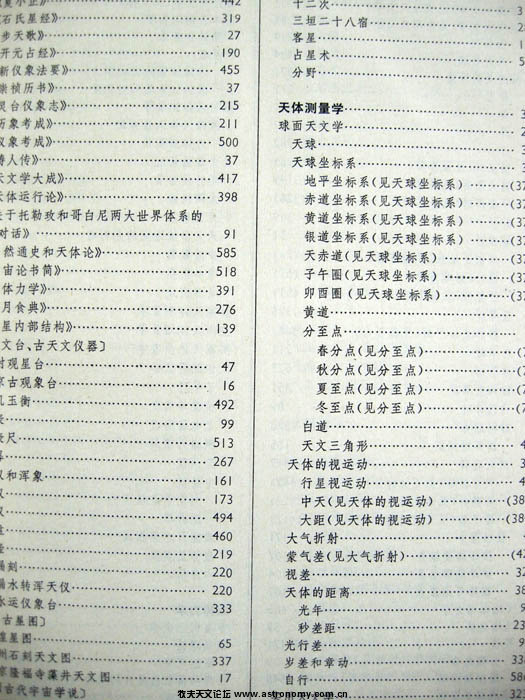 442
石氏星经》 319
步天歌》 27
开元占经》 190
新仪象法要》 455
崇祯历书》 37
灵台仪象志》 215
历象考成》 211
仪象考成》 500
畴人传》 37
天文学大成》 417
天体运行论》 398
关于托勒玫和哥白尼两大世界体系的
对话》 91
然通史和天体论》 585
宙论书简》 518
体力学》 391
月食典》 276
星内部结构》 139
文台、古天文仪器〕
观星台 47
京古观象台 16
玑玉衡 492
99
尺 513
267
仪和浑象 161
仪 173
仪 494
460
219
漏刻 220
漏水转浑天仪 220
水运仪象台 333
古星图〕
星图 65
州石刻天文图 337
京隆福寺藻井天文图 17
古代宇宙学说〕
十二次
三垣二十八宿
客星
占星术
分野
天体测量学
球面天文学
天球
天球坐标系
地平坐标系(见天球坐标系) (37
赤道坐标系(见天球坐标系) (37
黄道坐标系(见天球坐标系) (37
银道坐标系(见天球坐标系) (37
天赤道(见天球坐标系) (37
子午圈(见天球坐标系) (37
卯酉圈(见天球坐标系) (37
黄道
分至点
春分点(见分至点) (7
秋分点(见分至点) (7
夏至点(见分至点) (7
冬至点(见分至点) (7
白道
天文三角形 4
天体的视运动 3
行星视运动 4
中天(见天体的视运动) (38
大距(见天体的视运动) (38
大气折射
蒙气差(见大气折射) (4
视差 32
天体的距离 38
光年 9
秒差距 23
光行差
岁差和章动 33
自行 58
牧夫天文论坛 www.astronomy.com.cn